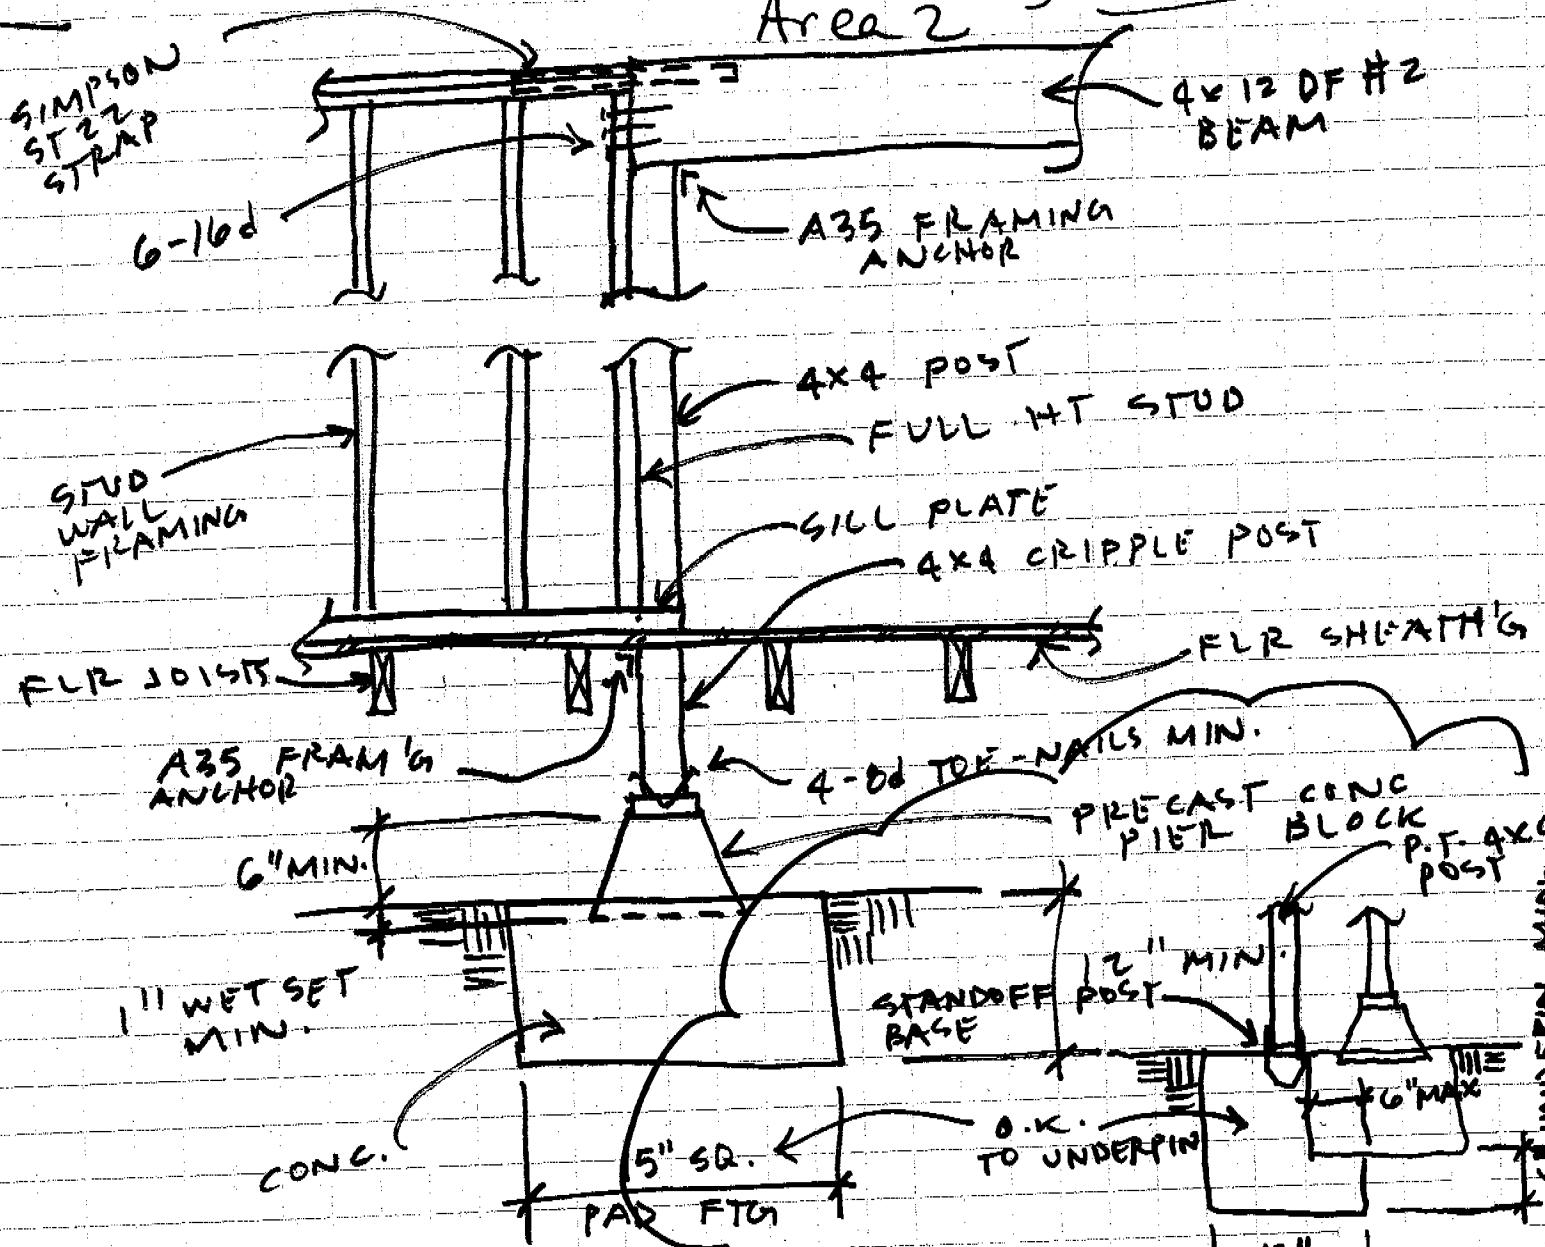 Area 2
SIMPSON
ST22
STRAP
4x12 DF #2
BEAM
6-16d
A35 FRAMING
ANCHOR
4x4 POST
FULL HT STUD
STUD
WALL
FRAMING
SILL PLATE
4x4 CRIPPLE POST
FLR JOISTS
FLR SHEATH'G
A35 FRAM'G
ANCHOR
4-8d TOE-NAILS MIN.
PRECAST CONC
PIER BLOCK
6" MIN.
P.T. 4X
POST
12" MIN.
1" WET SET
MIN.
STANDOFF POST
BASE
6" MAX
CONC.
5" SQ.
PAD FTG
O.K.
TO UNDERPIN